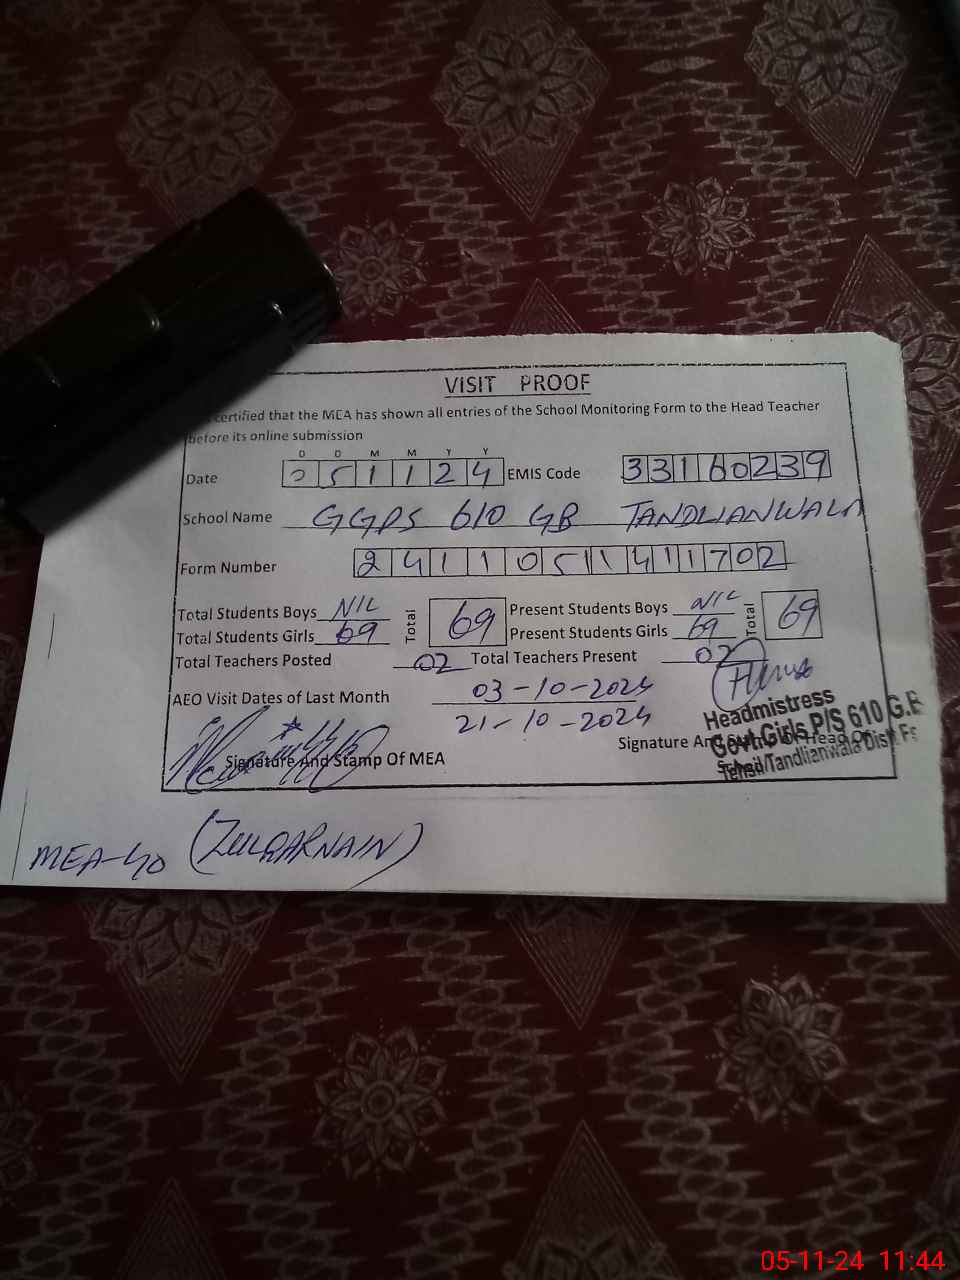 VISIT PROOF
certified that the MEA has shown all entries of the School Monitoring Form to the Head Teacher
before its online submission
D D M M Y Y
Date 051124 EMIS Code 33160239
School Name GGPS 610 GB TANDLIANWALA
Form Number 241105141702
Total Students Boys NIL Total 69 Present Students Boys NIL Total 69
Total Students Girls 69 Present Students Girls 69
Total Teachers Posted 02 Total Teachers Present 02
AEO Visit Dates of Last Month 03-10-2024
21-10-2024
Headmistress
Govt.Girls P/S 610 G.B
Tehsil Tandlianwala Dist Fs
Signature And Stamp Of MEA
Signature And Of Head Of
School
MEA-40 (ZULQARNAIN)
05-11-24 11:44